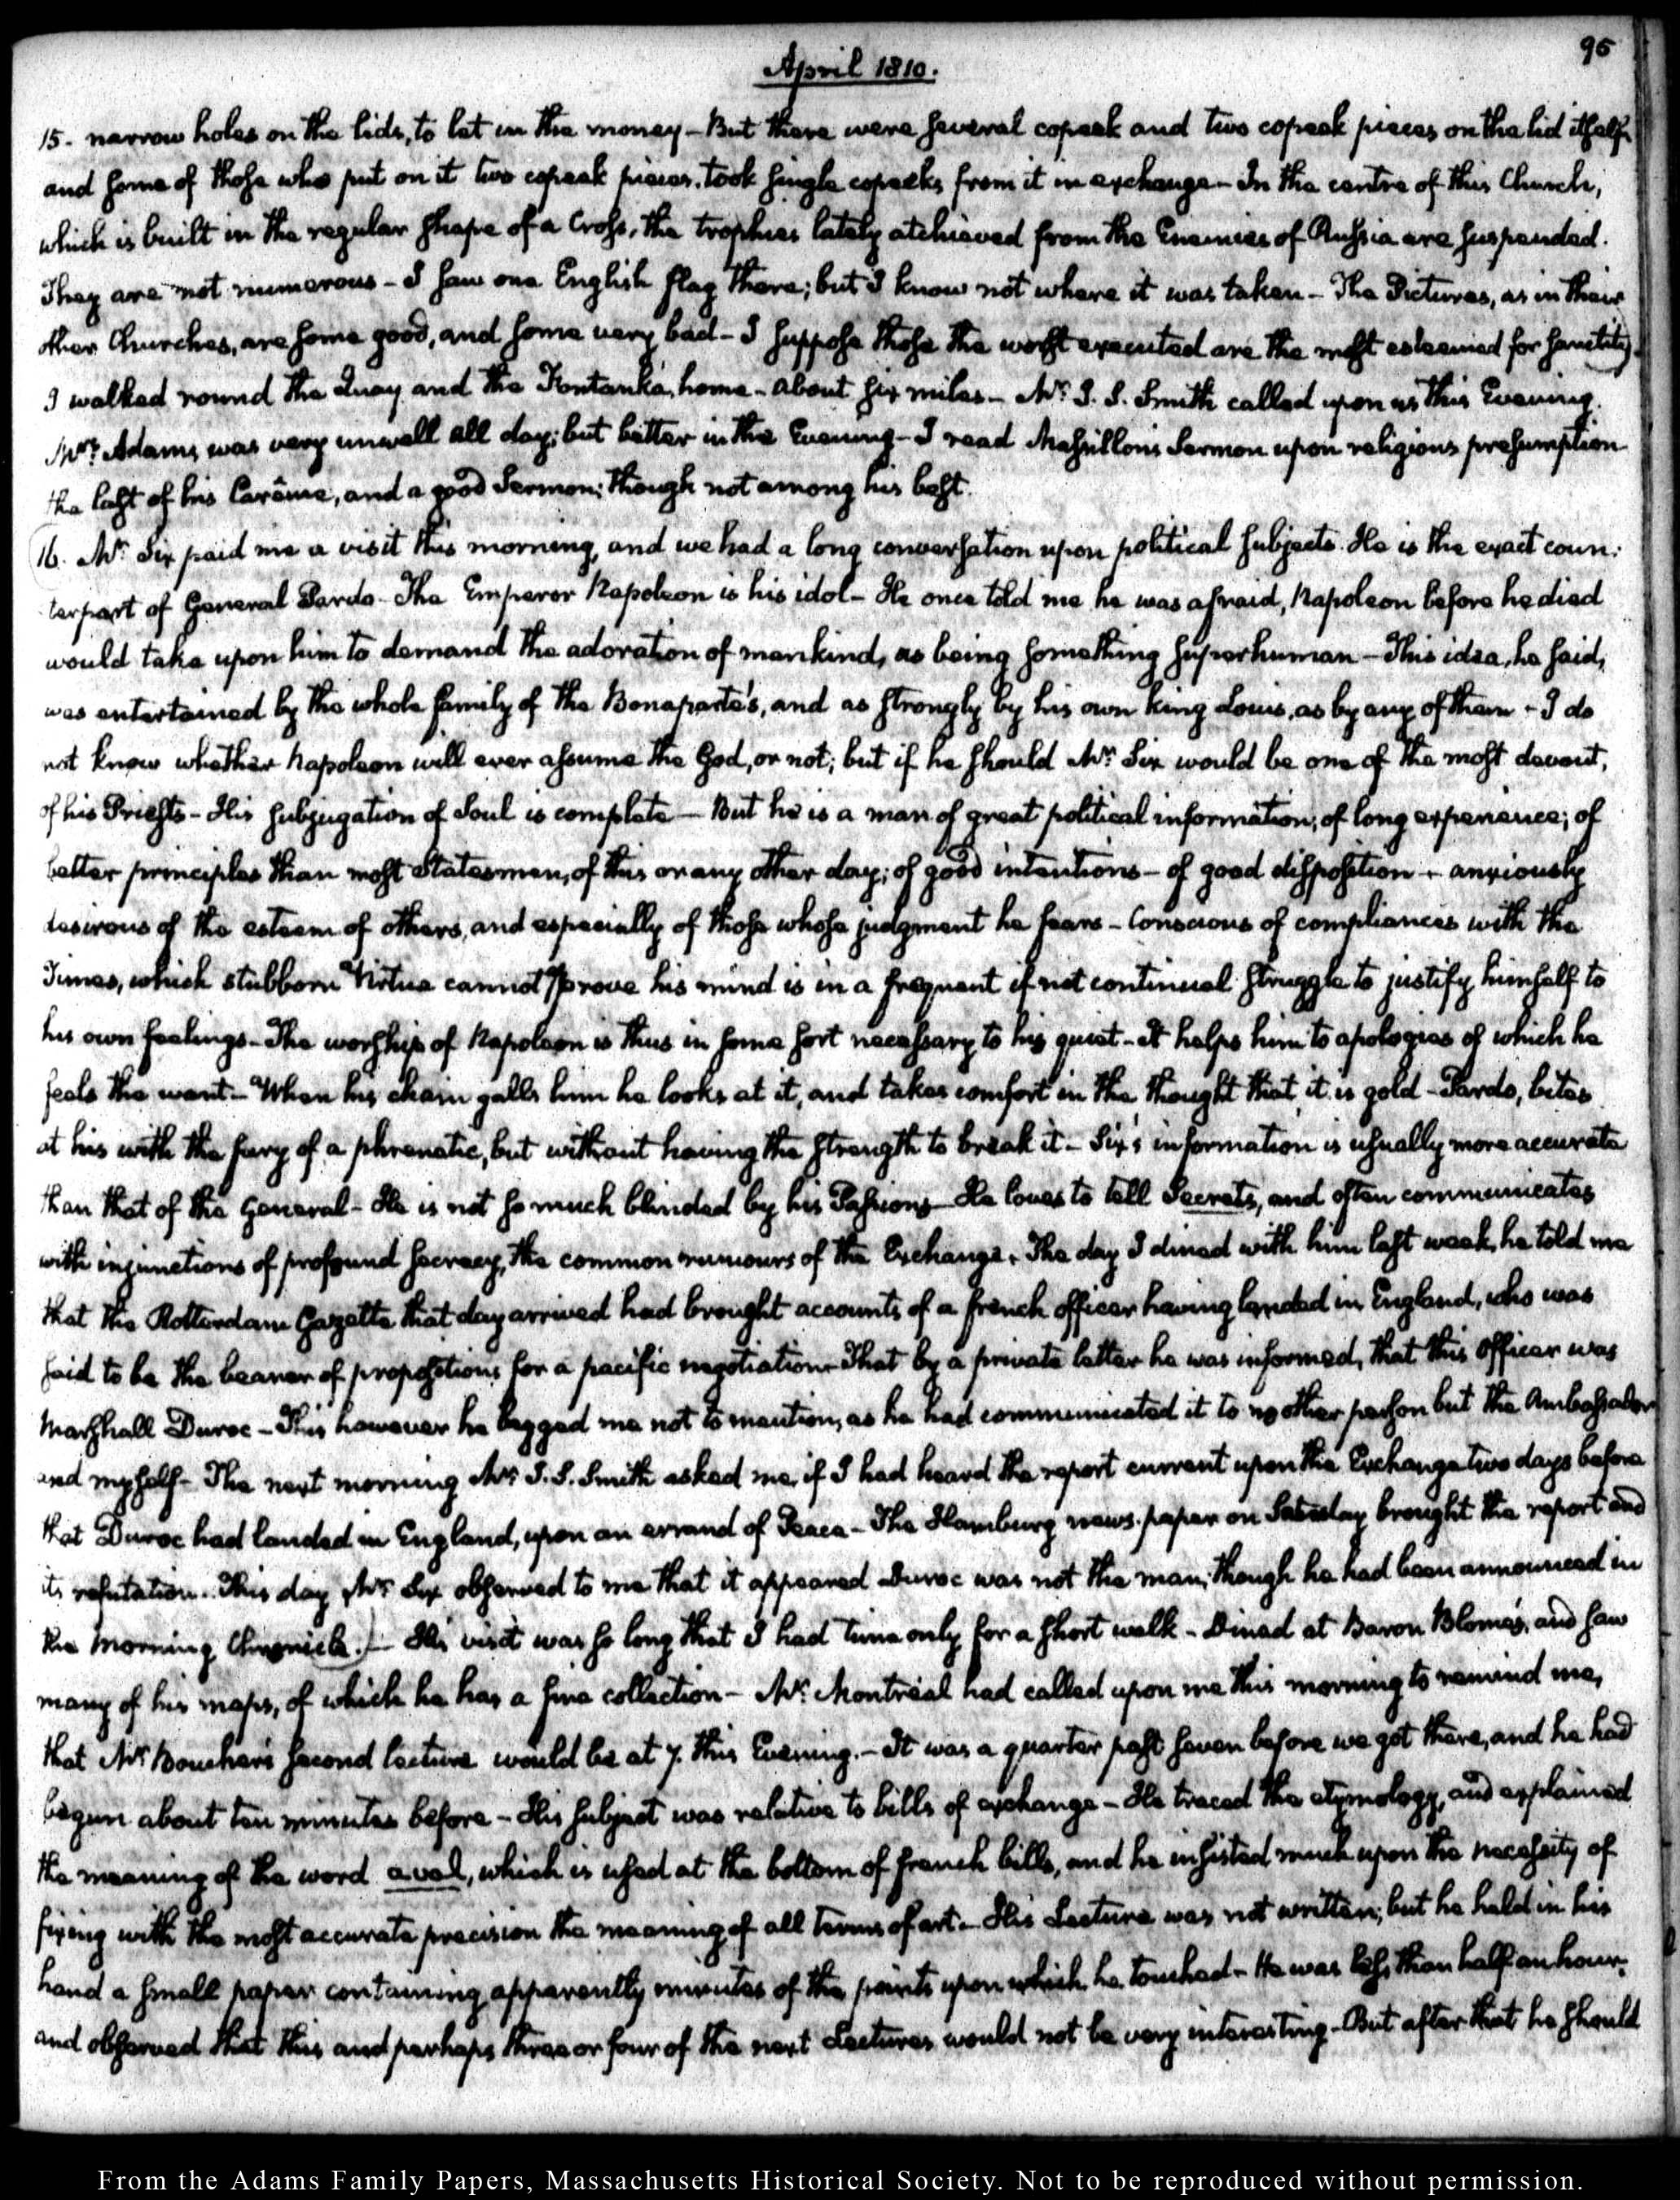 95
April 1810.
15. narrow holes on the lids, to let in the money – But there were several copeek and two copeek pieces on the lid itself
and some of those who put on it two copeek pieces, took single copecks from it in exchange – In the centre of this Church,
which is built in the regular shape of a Cross, the trophies lately atchieved from the Enemies of Russia are suspended.
They are not numerous – I saw one English flag there; but I know not where it was taken – The Pictures, as in their
other Churches, are some good, and some very bad – I suppose those the worst executed are the most esteemed for sanctity.
I walked round the Quay and the Fontanka, home – about six miles – Mr. J. S. Smith called upon us this Evening.
Mrs. Adams was very unwell all day; but better in the Evening – I read Massillon's Sermon upon religious presumption
the last of his Carême, and a good Sermon; though not among his best.
16. Mr. Six paid me a visit this morning, and we had a long conversation upon political subjects. He is the exact coun:
terpart of General Pardo – The Emperor Napoleon is his idol – He once told me he was afraid, Napoleon before he died
would take upon him to demand the adoration of mankind, as being something superhuman – This idea, he said,
was entertained by the whole family of the Bonaparte's, and as strongly by his own king Louis, as by any of them – I do
not know whether Napoleon will ever assume the God, or not; but if he should Mr. Six would be one of the most devout,
of his Priests – His subjugation of Soul is complete – But he is a man of great political information; of long experience; of
better principles than most Statesmen, of this or any other day; of good intentions – of good disposition – anxiously
desirous of the esteem of others, and especially of those whose judgment he fears – Conscious of compliances with the
Times, which stubborn Virtue cannot approve his mind is in a frequent if not continual struggle to justify himself to
his own feelings – The worship of Napoleon is thus in some sort necessary to his quiet – It helps him to apologies of which he
feels the want – When his chain galls him he looks at it, and takes comfort in the thought that it is gold – Pardo, bites
at his with the fury of a phrenetic, but without having the strength to break it – Six's information is usually more accurate
than that of the General – He is not so much blinded by his Passions – He loves to tell Secrets, and often communicates
with injunctions of profound secrecy, the common rumours of the Exchange. The day I dined with him last week, he told me
that the Rotterdam Gazette that day arrived had brought accounts of a french officer having landed in England, who was
said to be the bearer of propositions for a pacific negotiation – That by a private letter he was informed, that this Officer was
Marshall Duroc – This however he begged me not to mention, as he had communicated it to no other person but the Ambassador
and myself – The next morning Mr. J. S. Smith asked me, if I had heard the report current upon the Exchange two days before
that Duroc had landed in England, upon an errand of Peace – The Hamburg news-paper on Saturday brought the report and
its refutation. This day Mr. Six observed to me that it appeared Duroc was not the man; though he had been announced in
the Morning Chronicle. – His visit was so long that I had time only for a short walk – Dined at Baron Blome's, and saw
many of his maps, of which he has a fine collection – Mr. Montréal had called upon me this morning to remind me,
that Mr. Boucher's second lecture would be at 7. this Evening. – It was a quarter past seven before we got there, and he had
begun about ten minutes before – His subject was relative to bills of exchange – He traced the etymology, and explained
the meaning of the word aval, which is used at the bottom of french bills, and he insisted much upon the necessity of
fixing with the most accurate precision the meaning of all terms of art – His Lecture was not written; but he held in his
hand a small paper containing apparently minutes of the points upon which he touched – He was less than half an hour;
and observed that this and perhaps three or four of the next Lectures would not be very interesting – But after that he should
From the Adams Family Papers, Massachusetts Historical Society. Not to be reproduced without permission.